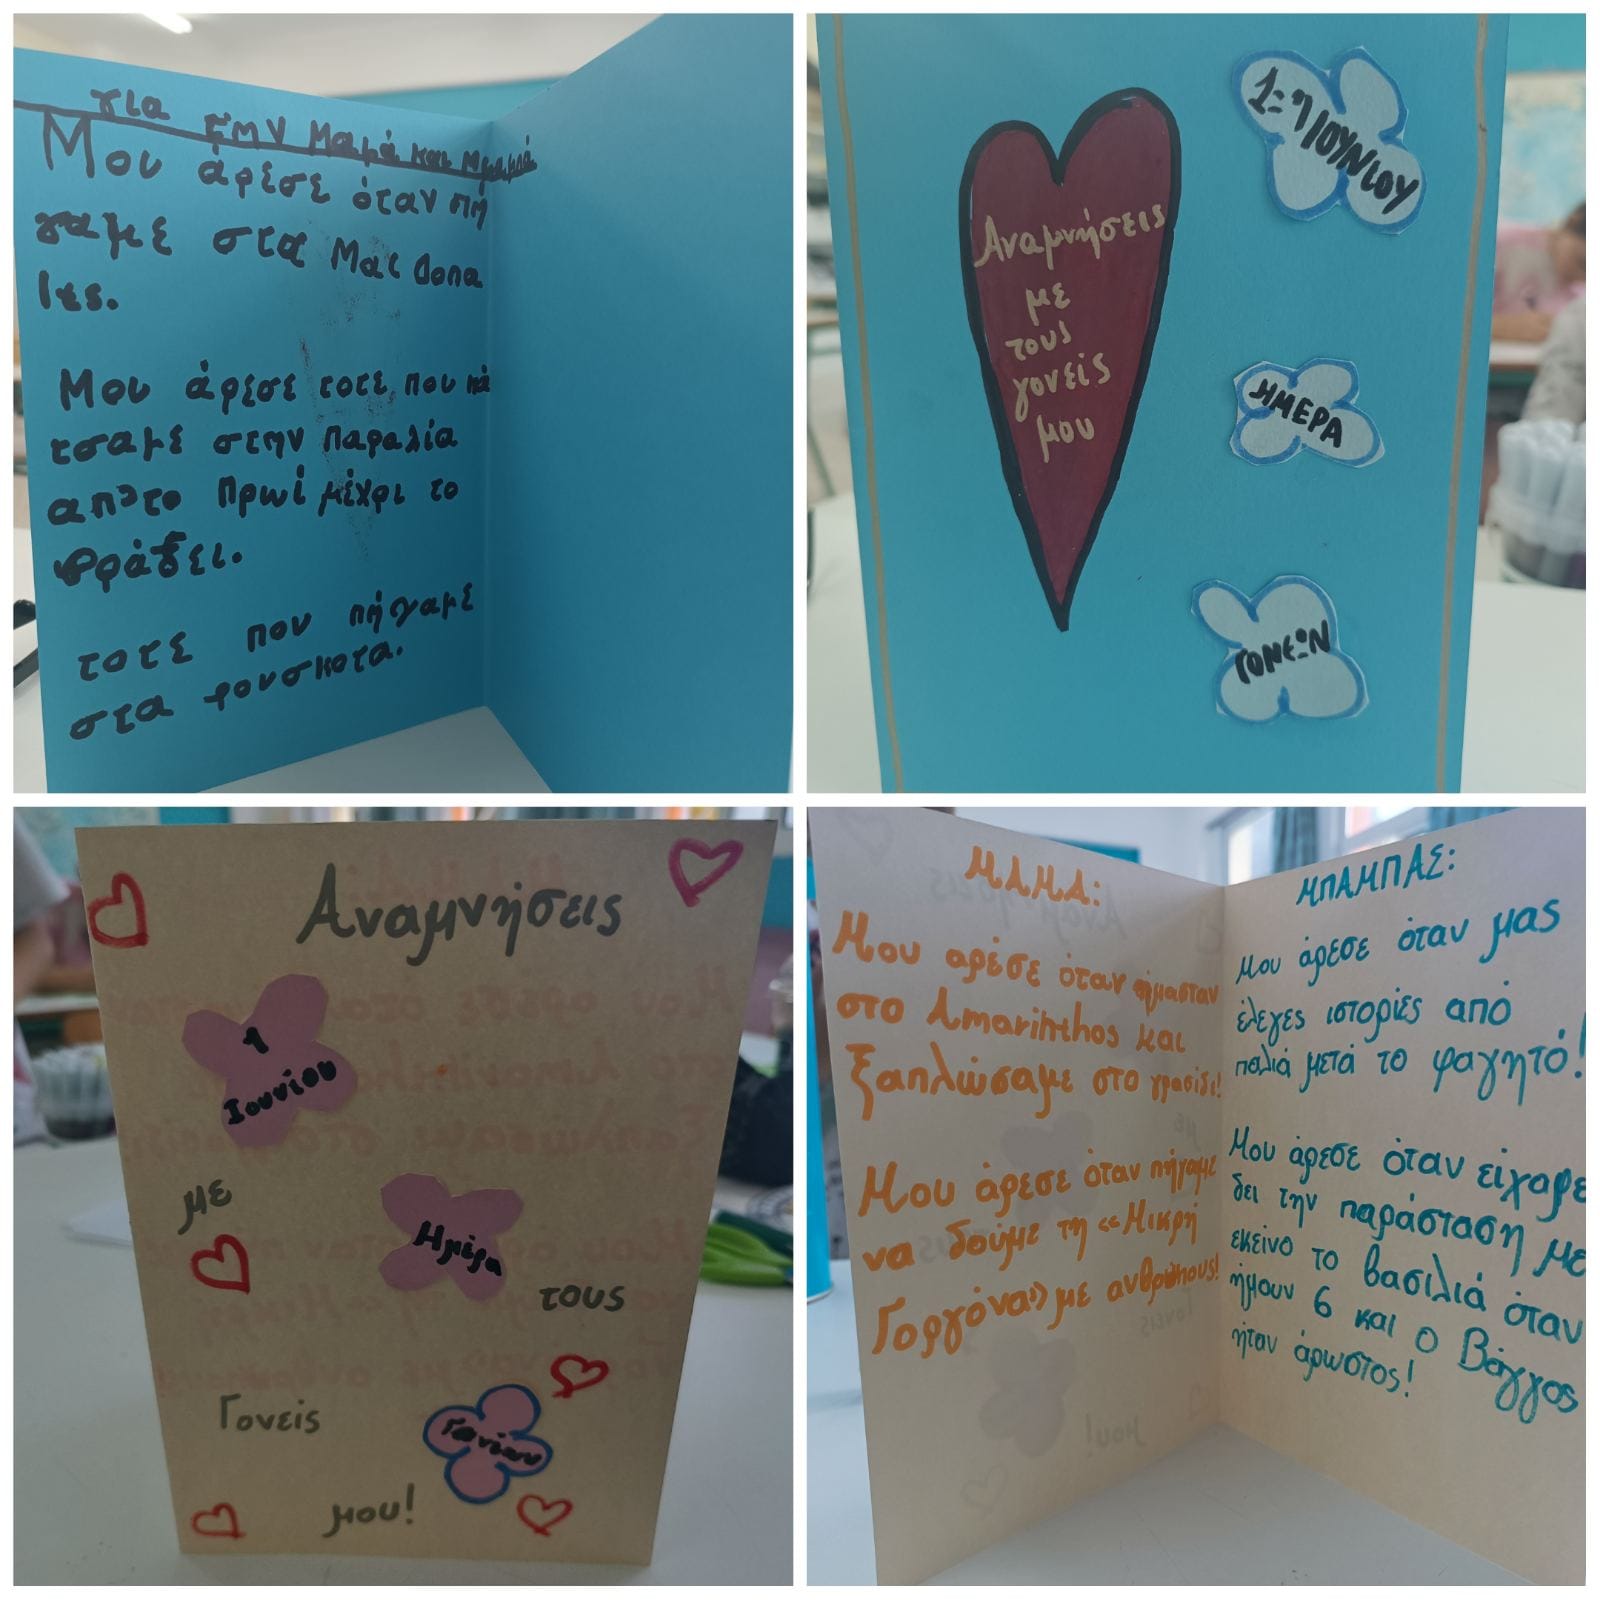 για την Μαμά και Μπαμπά
Μου άρεσε όταν πη
γαμε στα Μac Dona
lτς.
Μου άρεσε τοτε που κά
τσαμε στην Παραλία
απ'το Πρωί μέχρι το
Βράδει.
τοτε που πήγαμε
στα φουσκοτα.
Αναμνήσεις
με
τους
γονείς
μου
1=η ΙΟΥΝΙΟΥ
ΗΜΕΡΑ
ΓΟΝΕΩΝ
Αναμνήσεις
1
Ιουνίου
με
Ημέρα
τους
Γονείς
μου!
ΜΑΜΑ:
Μου αρέσε όταν ήμασταν
στο Amarinthos και
ξαπλώσαμε στο γρασίδι!
Μου άρεσε όταν πήγαμε
να δούμε τη «Μικρή
Γοργόνα» με ανθρώπους!
ΜΠΑΜΠΑΣ:
Μου άρεσε όταν μας
έλεγες ιστορίες από
παλιά μετά το φαγητό!
Μου άρεσε όταν είχαμε
δει την παράσταση με
εκείνο το βασιλιά όταν
ήμουν 6 και ο Βάγγος
ήταν άρωστος!